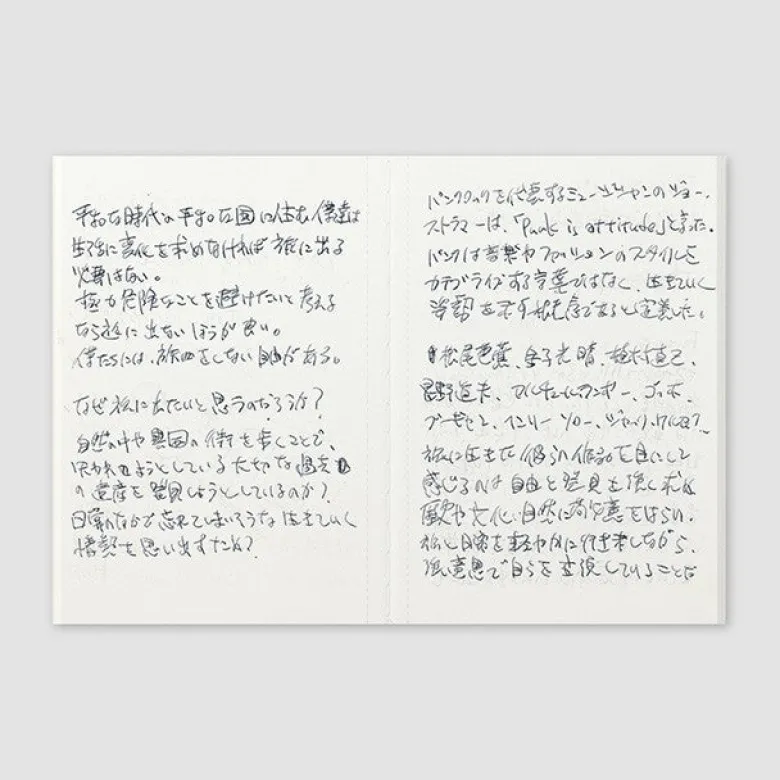 平和な時代の平和な国に住む僕達は
生活に変化を求めなければ旅に出る
必要はない。
極力危険なことを避けたいと考える
なら旅に出ないほうが良い。
僕たちには、旅をしない自由がある。
なぜ旅に出たいと思うのだろうか?
自然の中や異国の街を歩くことで、
失われようとしている大切な過去
の遺産を発見しようとしているのか?
日常のなかで忘れてしまいそうな生きていく
情熱を思い出すため?
パンクロックを代表するミュージシャンのジョー・
ストラマーは、「Punk is attitude」と言った。
パンクは音楽やファッションのスタイルを
カテゴライズする言葉ではなく、生きていく
姿勢を示す概念であると定義した。
松尾芭蕉、金子光晴、植村直己、
星野道夫、アルチュール・ランボー、ゴッホ、
ゴーギャン、ヘンリー・ソロー、ジャック・ケルアック、
旅に生きた彼らの作品を目にして
感じるのは自由と発見を強く求め
歴史や文化、自然に敬意をはらい、
旅と日常を軽やかに行き来しながら、
強い意思で自らを変換していることだ